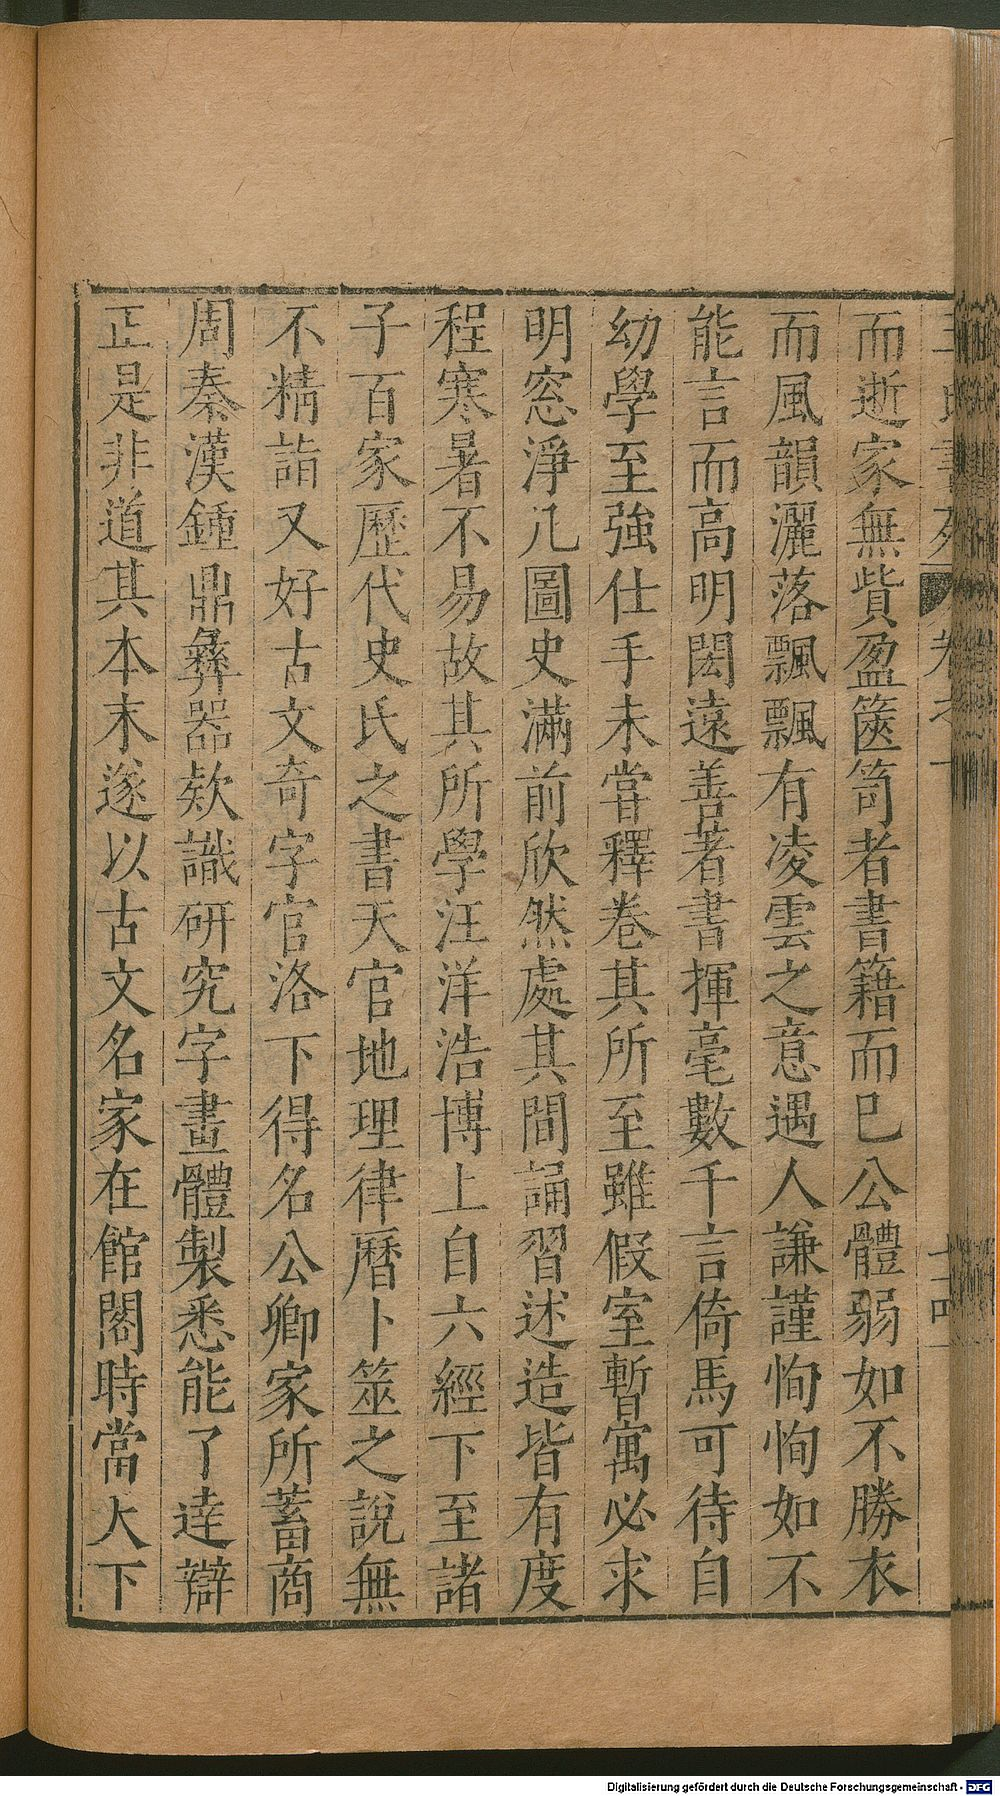 而逝家無貲盈篋笥者書籍而已公體弱如不勝衣
而風韻灑落飄飄有凌雲之意遇人謙謹恂恂如不
能言而高明閎遠善著書揮毫數千言倚馬可待自
幼學至強仕手未甞釋卷其所至雖假室暫寓必求
明窓淨几圖史滿前欣然處其間誦習述造皆有度
程寒暑不易故其所學汪洋浩博上自六經下至諸
子百家歷代史氏之書天官地理律曆卜筮之說無
不精詣又好古文奇字官洛下得名公卿家所蓄商
周秦漢鍾鼎彝器欵識研究字畫體製悉能了達辯
正是非道其本末遂以古文名家在館閣時當大下
Digitalisierung gefördert durch die Deutsche Forschungsgemeinschaft - DFG